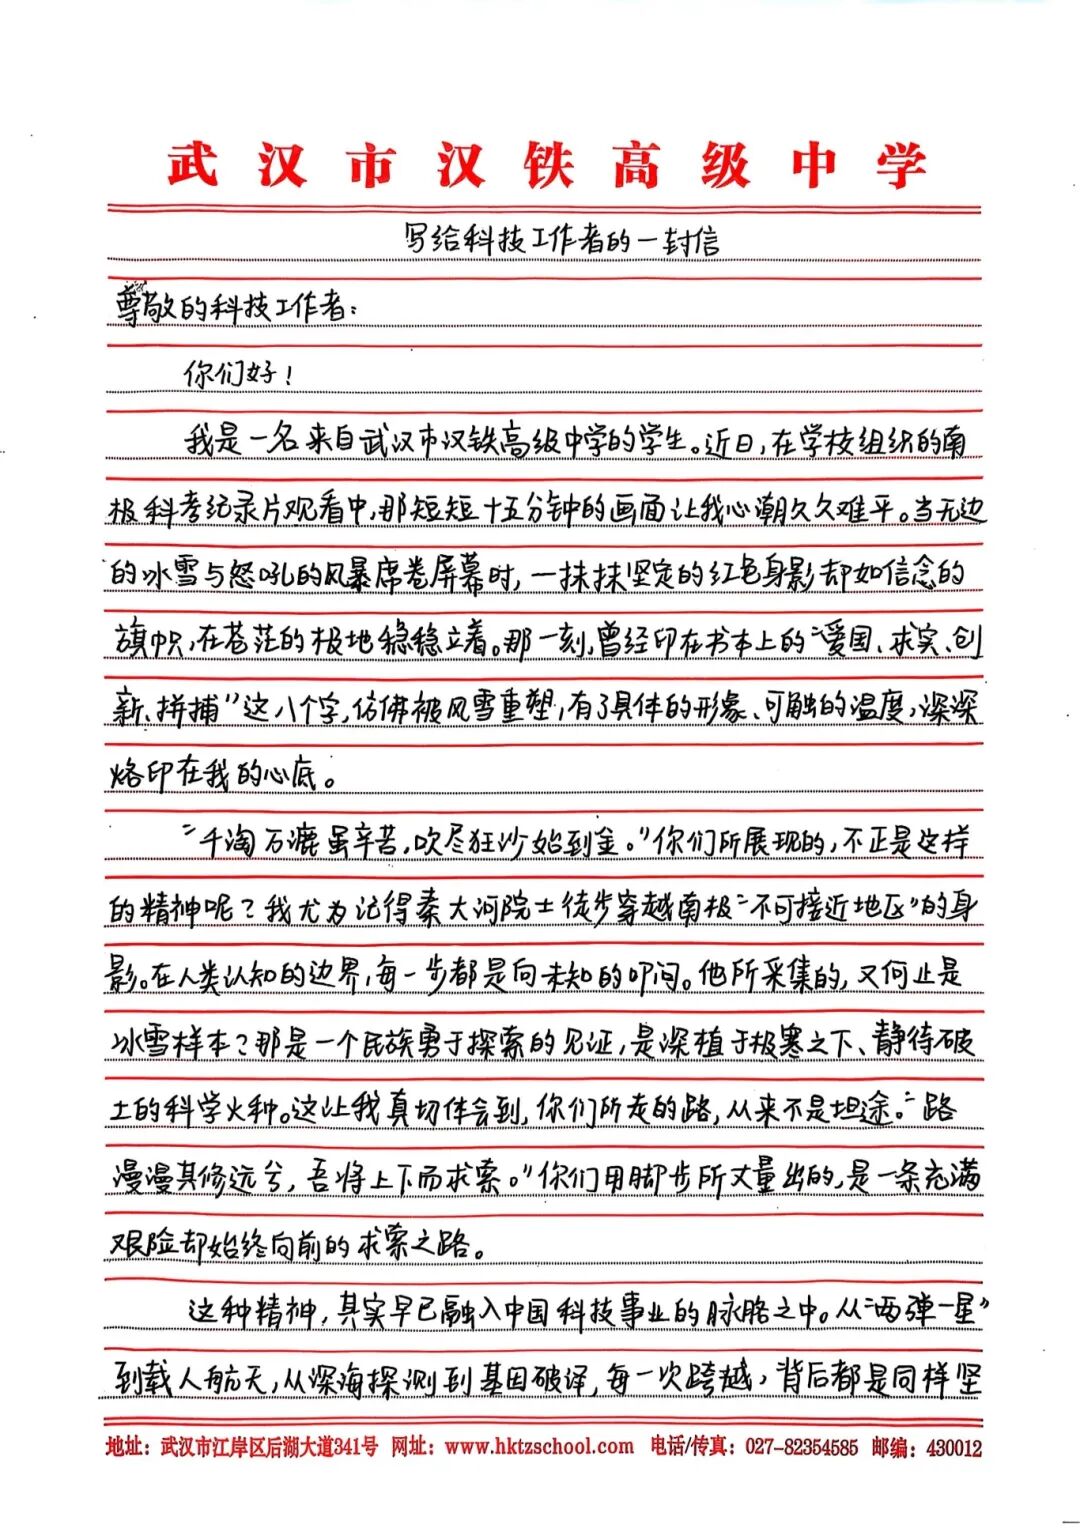 武汉市汉铁高级中学
写给科技工作者的一封信
尊敬的科技工作者：
你们好！
我是一名来自武汉市汉铁高级中学的学生。近日，在学校组织的南
极科考纪录片观看中，那短短十五分钟的画面让我心潮久久难平。当无边
的冰雪与怒吼的风暴席卷屏幕时，一抹抹坚定的红色身影却如信念的
旗帜，在苍茫的极地稳稳立着。那一刻，曾经印在书本上的“爱国、求实、创
新、拼搏”这八个字，仿佛被风雪重塑，有了具体的形象、可触的温度，深深
烙印在我的心底。
“千淘万漉虽辛苦，吹尽狂沙始到金。”你们所展现的，不正是这样
的精神呢？我尤为记得秦大河院士徒步穿越南极“不可接近地区”的身
影。在人类认知的边界，每一步都是向未知的叩问。他所采集的，又何止是
冰雪样本？那是一个民族勇于探索的见证，是深植于极寒之下、静待破
土的科学火种。这让我真切体会到，你们所走的路，从来不是坦途。“路
漫漫其修远兮，吾将上下而求索。”你们用脚步所丈量出的，是一条充满
艰险却始终向前的求索之路。
这种精神，其实早已融入中国科技事业的脉胳之中。从“两弹一星”
到载人航天，从深海探测到基因破译，每一次跨越，背后都是同样坚
地址：武汉市江岸区后湖大道341号 网址：www.hktzschool.com 电话/传真：027-82354585 邮编：430012